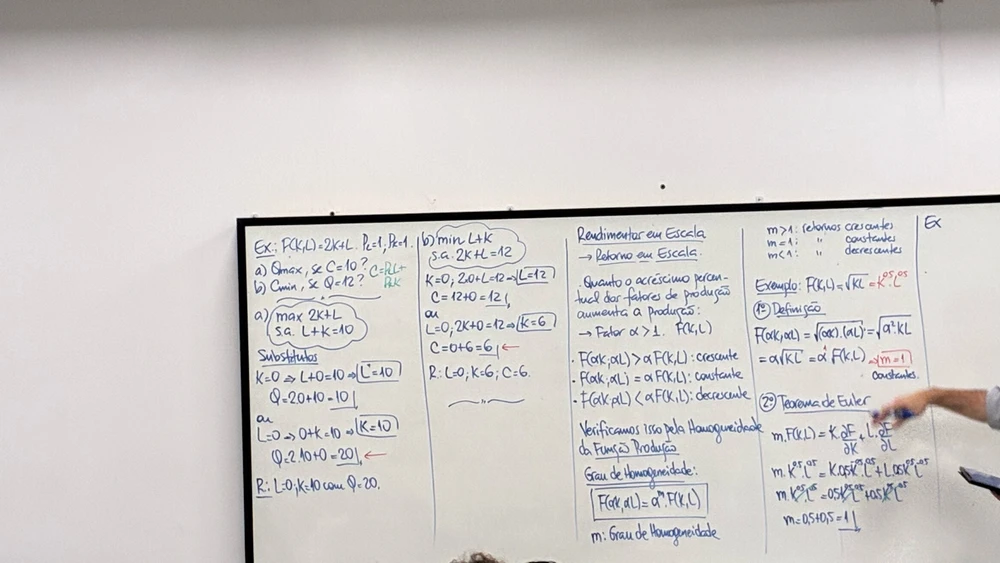 Ex.: F(K,L)=2K+L. PL=1, PK=1.
a) Qmax, se C=10? C=PLL+
b) Cmin, se Q=12? PKK
a) max 2K+L
s.a. L+K=10
Substitutos
K=0 ⇒ L+0=10 ⇒ L=10
Q=2.0+10=10
ou
L=0 ⇒ 0+K=10 ⇒ K=10
Q=2.10+0=20 ←
R: L=0; K=10 com Q=20.
b) min L+K
s.a. 2K+L=12
K=0; 2.0+L=12 ⇒ L=12
C=12+0=12
ou
L=0; 2K+0=12 ⇒ K=6
C=0+6=6 ←
R: L=0; K=6; C=6.
Rendimentos em Escala
→ Retorno em Escala.
Quanto o acréscimo percen-
tual dos fatores de produção
aumenta a produção:
→ Fator α>1. F(K,L)
· F(αK;αL) > αF(K,L): crescente
· F(αK;αL) = αF(K,L): constante
· F(αK;αL) < αF(K,L): decrescente
Verificamos isso pela Homogeneidade
da Função Produção
Grau de Homogeneidade:
F(αK,αL)=α^m.F(K,L)
m: Grau de Homogeneidade
m>1: retornos crescentes
m=1: " constantes
m<1: " decrescentes
Exemplo: F(K,L)=√KL=K^0,5.L^0,5
1º) Definição
F(αK,αL)=√(αK).(αL)=√α².KL
=α√KL=α¹F(K,L) ⇒ m=1
constantes.
2º) Teorema de Euler
m.F(K,L)=K.∂F/∂K+L.∂F/∂L
m.K^0,5.L^0,5=K.0,5K^-0,5.L^0,5+L.0,5K^0,5L^-0,5
m.K^0,5L^0,5=0,5K^0,5L^0,5+0,5K^0,5L^0,5
m=0,5+0,5=1
Ex